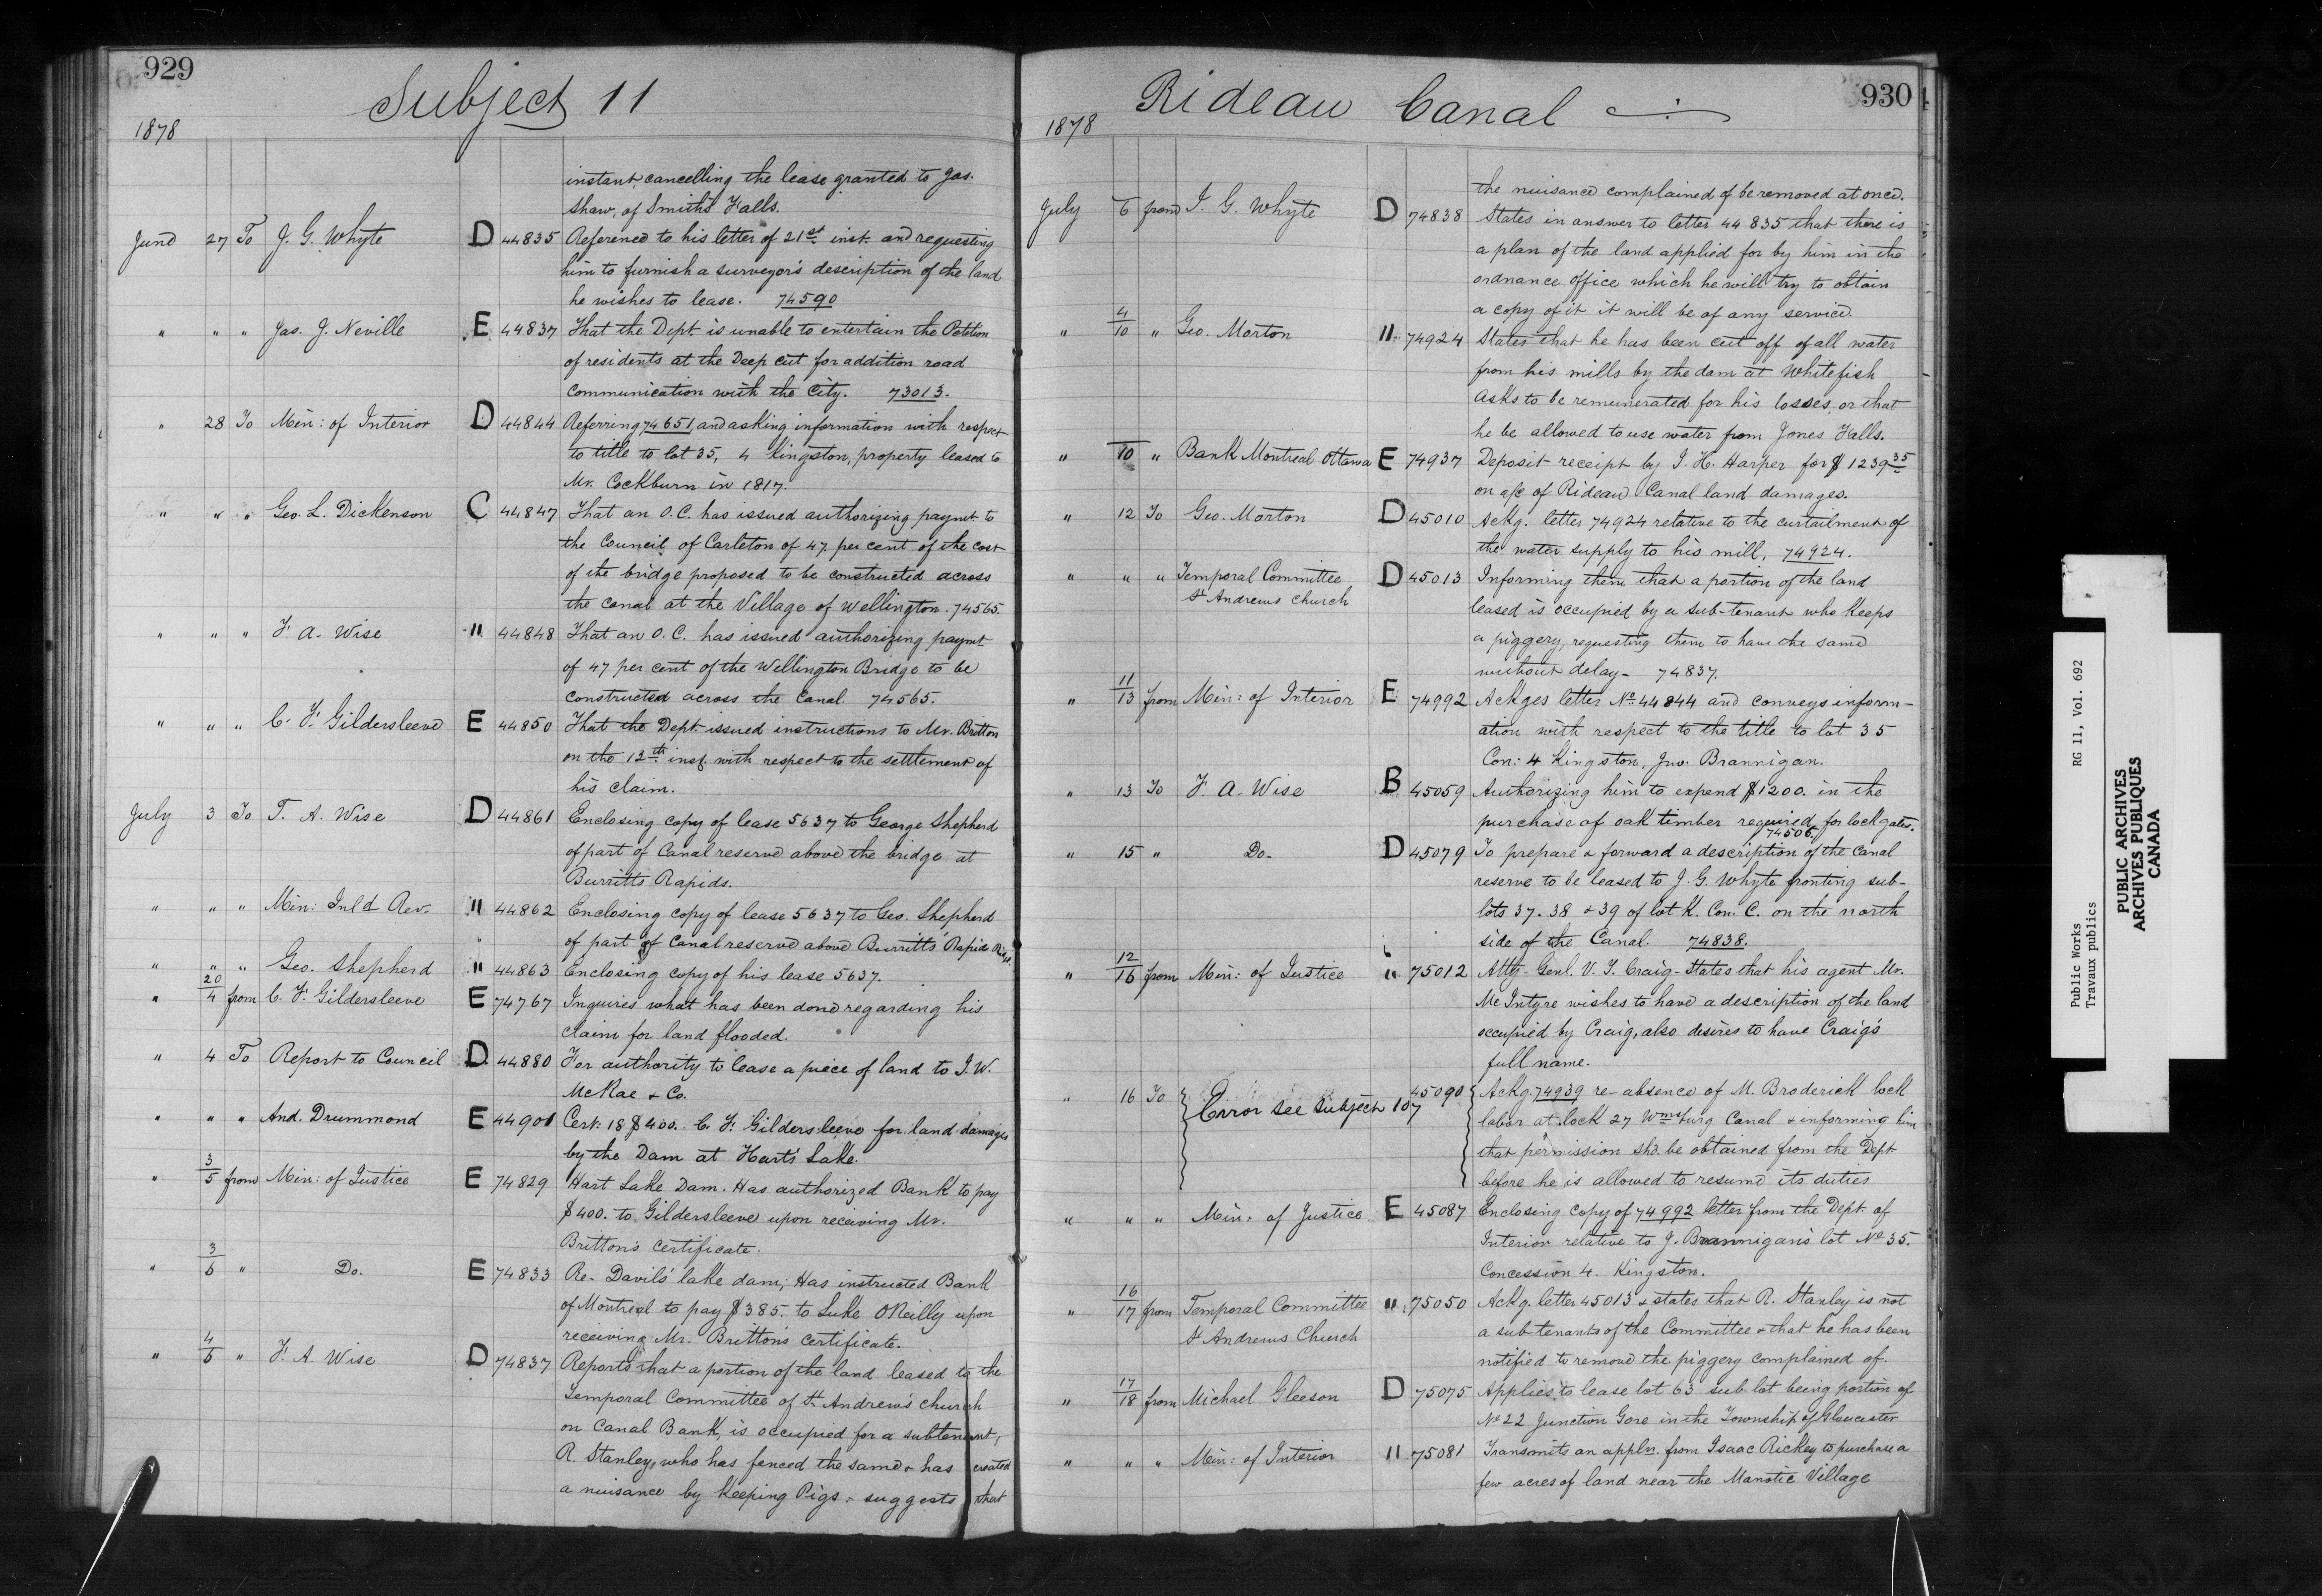 929
Subject 11
1878
instant, cancelling the lease granted to Jas.
Shaw, of Smith's Falls.
June 27 To J. G. Whyte D 44835 Reference to his letter of 21st inst. and requesting
him to furnish a surveyor's description of the land
he wishes to lease. 74590
" " " Jas. J. Neville E 44837 That the Dept. is unable to entertain the Petition
of residents at the Deep cut for addition road
communication with the City. 73013.
" 28 To Min: of Interior D 44844 Referring 74651 and asking information with respect
to title to lot 35, 4 Kingston, property leased to
Mr. Cockburn in 1817.
" " " Geo. L. Dickenson C 44847 That an O.C. has issued authorizing paymt. to
the Council of Carleton of 47 per cent of the cost
of the bridge proposed to be constructed across
the canal at the Village of Wellington. 74565
" " " F. A. Wise " 44848 That an O.C. has issued authorizing paymt
of 47 per cent of the Wellington Bridge to be
constructed across the Canal 74565.
" " " C. F. Gildersleeve E 44850 That the Dept. issued instructions to Mr. Britton
on the 12th inst. with respect to the settlement of
his claim.
July 3 To F. A. Wise D 44861 Enclosing copy of lease 5637 to George Shepherd
of part of Canal reserve above the bridge at
Burritts Rapids.
" " " Min: Inld Rev. " 44862 Enclosing copy of lease 5637 to Geo. Shepherd
of part of Canal reserve above Burritts' Rapids
" " " Geo. Shepherd " 44863 Enclosing copy of his lease 5637.
" 20/4 from C. F. Gildersleeve E 74767 Inquires what has been done regarding his
claim for land flooded.
" 4 To Report to Council D 44880 For authority to lease a piece of land to J. W.
McRae & Co.
" " " And. Drummond E 44901 Cert. 18 $400. C. F. Gildersleeve for land damages
by the Dam at Hart's Lake.
" 3/5 from Min: of Justice E 74829 Hart Lake Dam. Has authorized Bank to pay
$400. to Gildersleeve upon receiving Mr.
Britton's certificate.
" 3/6 " Do. E 74833 Re- Davils' lake dam; Has instructed Bank
of Montreal to pay $385. to Luke OReilly upon
receiving Mr. Britton's certificate.
" 4/6 " F. A. Wise D 74837 Reports that a portion of the land leased to the
Temporal Committee of St. Andrew's church
on Canal Bank, is occupied for a subtenant,
R. Stanley, who has fenced the same & has created
a nuisance by keeping Pigs & suggests that
930
Rideau Canal
1878
the nuisance complained of be removed at once.
July 6 from J. G. Whyte D 74838 States in answer to letter 44835 that there is
a plan of the land applied for by him in the
ordnance office which he will try to obtain
a copy of it it will be of any service.
" 4/10 " Geo. Morton " 74924 States that he has been cut off of all water
from his mills by the dam at Whitefish
Asks to be remunerated for his losses, or that
he be allowed to use water from Jones Falls.
" 10 " Bank Montreal Ottawa E 74937 Deposit receipt by J. H. Harper for $1239 35
on a/c of Rideau Canal land damages.
" 12 To Geo. Morton D 45010 Ackg. letter 74924 relative to the curtailment of
the water supply to his mill, 74924.
" " " Temporal Committee D 45013 Informing them that a portion of the land
St Andrews Church leased is occupied by a sub-tenant who keeps
a piggery, requesting them to have the same
without delay - 74837.
" 11/13 from Min: of Interior E 74992 Ackges letter No. 44844 and conveys inform-
ation with respect to the title to lot 35
Con: 4 Kingston, Jno. Brannigan.
" 13 To F. A. Wise B 45059 Authorizing him to expend $1200. in the
purchase of oak timber required for lock gates.
74506.
" 15 " Do. D 45079 To prepare & forward a description of the Canal
reserve to be leased to J. G. Whyte fronting sub-
lots 37. 38 & 39 of lot K. Con. C. on the north
side of the Canal. 74838.
" 12/16 from Min: of Justice " 75012 Atty- Genl. V. J. Craig - States that his agent Mr.
McIntyre wishes to have a description of the land
occupied by Craig, also desires to have Craig's
full name.
" 16 To Error see subject 107 45090 Ackg. 74939 re-absence of M. Broderick lock
labor at lock 27 Wmsburg Canal & informing him
that permission shd. be obtained from the Dept
before he is allowed to resume its duties
" " " Min: of Justice E 45087 Enclosing copy of 74992 letter from the Dept. of
Interior relative to J. Brannigan's lot No 35.
Concession 4. Kingston.
" 16/17 from Temporal Committee " 75050 Ackg. letter 45013 & states that R. Stanley is not
St Andrews Church a sub tenants of the Committee & that he has been
notified to remove the piggery complained of.
" 17/18 from Michael Gleeson D 75075 Applies to lease lot 63 sub lot being portion of
No 22 Junction Gore in the Township of Gloucester
" " " Min: of Interior " 75081 Transmits an appln. from Isaac Rickey to purchase a
few acres of land near the Manotic Village
Public Works RG 11, Vol. 692
Travaux publics
PUBLIC ARCHIVES
ARCHIVES PUBLIQUES
CANADA